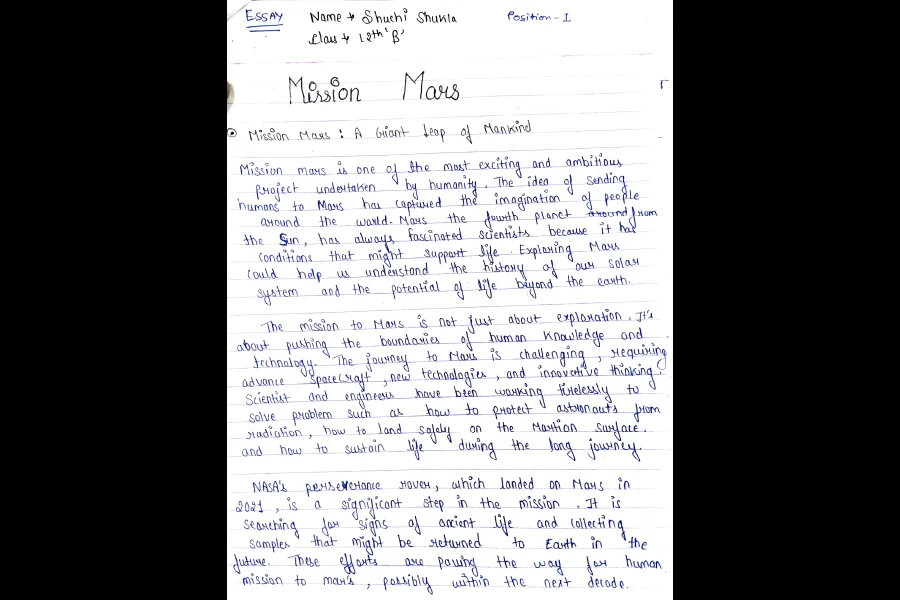 ESSAY Name → Shuchi Shukla Position - I
Class → 12th 'B'
Mission Mars
Mission Mars : A Giant leap of Mankind
Mission mars is one of the most exciting and ambitious
project undertaken by humanity. The idea of sending
humans to Mars has captured the imagination of people
around the world. Mars the fourth planet around from
the Sun, has always fascinated scientists because it has
conditions that might support life. Exploring Mars
could help us understand the history of our solar
system and the potential of life beyond the earth.
The mission to Mars is not just about exploration. It's
about pushing the boundaries of human knowledge and
technology. The journey to Mars is challenging, requiring
advance spacecraft, new technologies, and innovative thinking.
Scientist and engineers have been working tirelessly to
solve problem such as how to protect astronauts from
radiation, how to land safely on the Martian surface.
and how to sustain life during the long journey.
NASA's perseverance rover, which landed on Mars in
2021, is a significant step in the mission. It is
searching for signs of ancient life and collecting
samples that might be returned to Earth in the
future. These efforts are paving the way for human
mission to mars, possibly within the next decade.